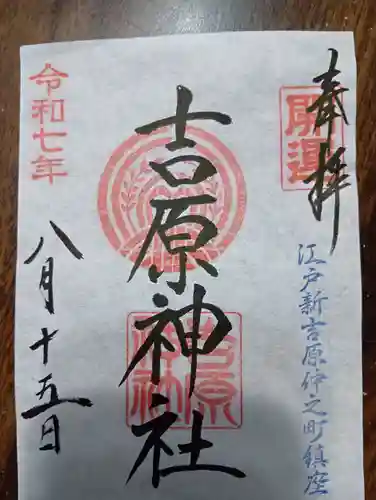 奉拝
開運
江戸新吉原仲之町鎮座
吉原神社
吉原神社
令和七年
八月十五日